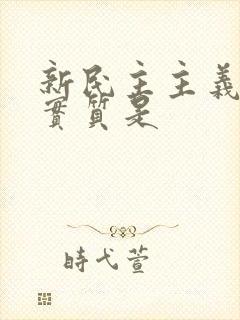 新民主主義
實質是
時弋萱